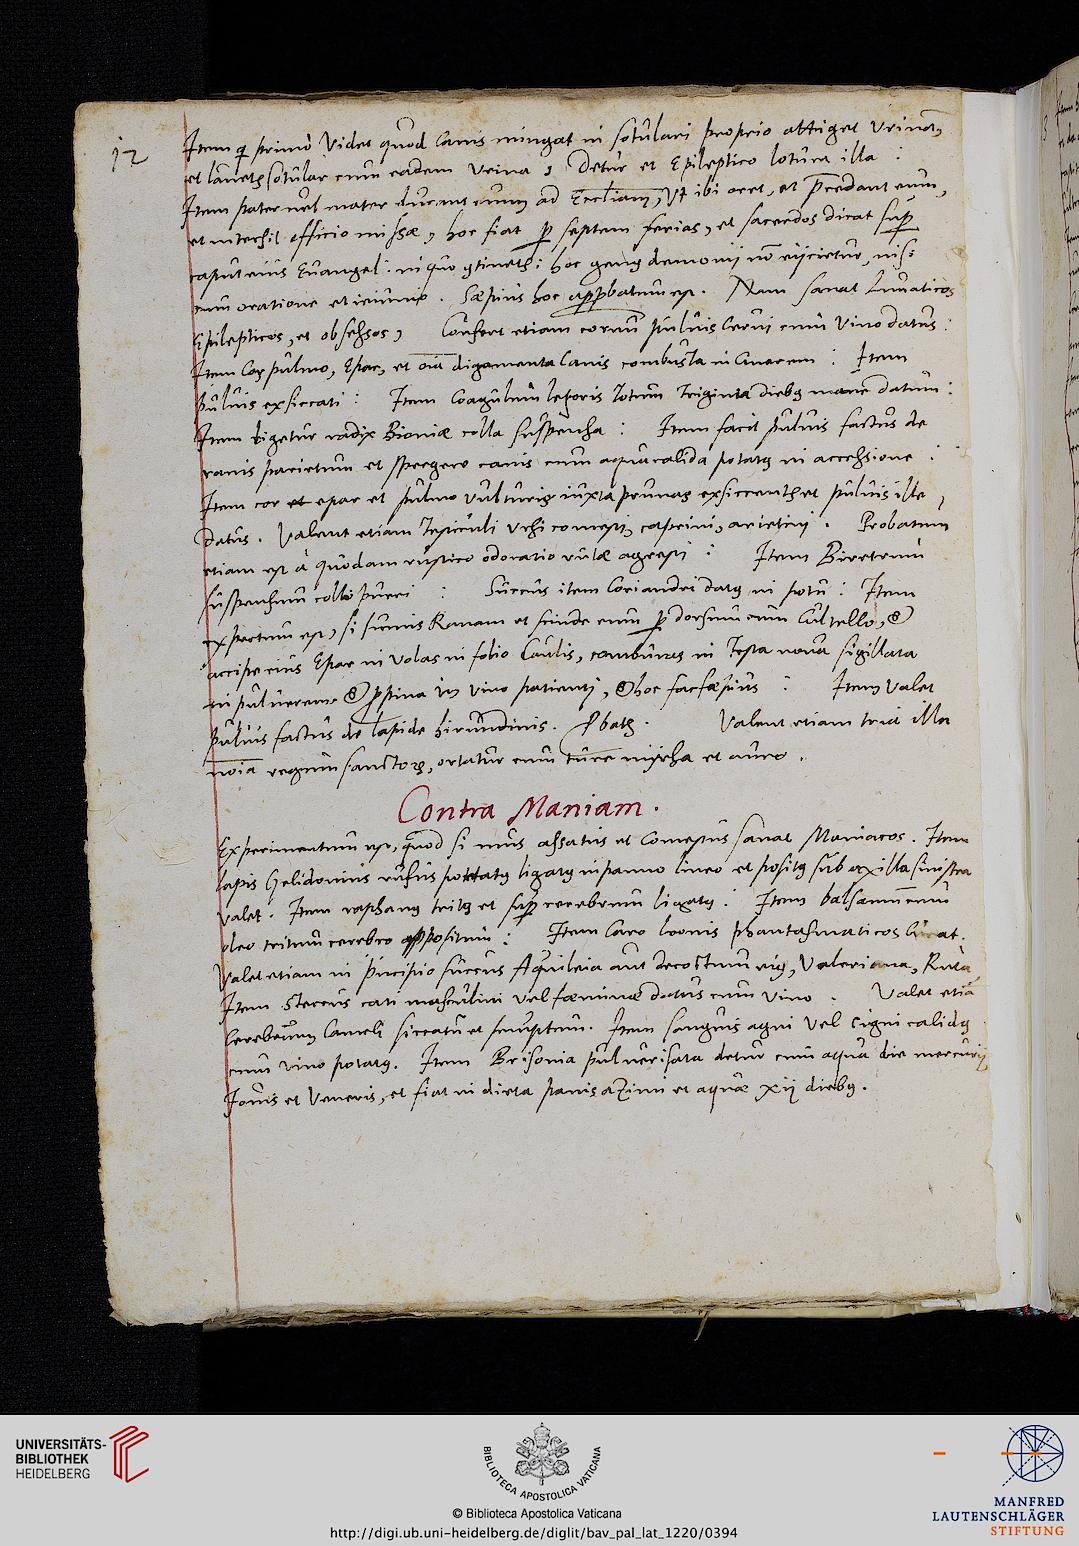 12
Item qi primo videt quod Canis mingat in sotulari proprio attiget Urinam,
et lauet sotular cum eadem Urina, Detur et Epileptico lotura illa :
Item pater vel mater ducant eum ad Eccliam, Vt ibi oret, et pcedant eum,
et intersit officio missæ, hoc fiat p septem ferias, et sacerdos dicat sup
caput eius Euangel: in quo gtinetr: hoc geng demonij nō eijcietur, nisi
cum oratione et ieiunio. Sæpius hoc appbatum est. Nam sanat Lunaticos
Epilepticos, et obsessos, Confert etiam cornu puluis Cerui cum Vino datus:
Item Cor pulmo, Epar, et oīa digamenta Canis combusta in Cinerem : Item
puluis exsiccati : Item Coagulum leporis Totum Triginta diebg mane datum:
Item ligetur radix Bioniæ collo suspensa : Item facit puluis factus de
ranis parietum et spergere canis cum aqua calida potatg in accessione :
Item cor et epar et pulmo vulturis iuxta prunas exsiccentr et puluis ille,
datus. Valent etiam Testiculi Vrsi comesti, caprini, arietini. Probatum
etiam est a quodam rustico odoratio rutæ agresti : Item Piretrum
suspensum collo pueri : Succus item Coriandri datg in potu : Item
expertum est, si sumis Ranam et scinde eum p dorsum cum Cultello, &
accipe eius Epar in volas in folio Caulis, combures in Testa noua sigillata
in puluerem & ppina in vino patienti, & hoc fac sæpius : Item Valet
puluis factus de lapide hirundinis. Pbatr. Valent etiam tria illa
noīa regum sanctorum, ortatur cum ture myrha et auro.
Contra Maniam.
Experimentum est, quod si mus assatus et Comestus sanat Maniacos. Item
lapis Gelidonius rufus portatg ligatg in panno lineo et positg sub axilla sinistra
valet. Item raphang tritg et sup cerebrum ligatg : Item balsamum cum
oleo tritum cerebro appositum : Item Caro leonis phantasmaticos Curat.
Valet etiam in pincipio succus Aquileia aut decoctum eig, Valeriana, Ruta
Item Stercus cati masculini vel fæminæ datus cum vino. Valet etiā
Cerebrum Cameli siccatū et sumptum. Item sanguis agni vel Cigni calidg
cum vino potatg. Item Brisonia puluerisata detur cum aqua die mercurij,
Jouis et Veneris, et fiat in dieta panis azimi et aquæ xij diebg.
UNIVERSITÄTS-
BIBLIOTHEK
HEIDELBERG
BIBLIOTECA APOSTOLICA VATICANA
© Biblioteca Apostolica Vaticana
http://digi.ub.uni-heidelberg.de/diglit/bav_pal_lat_1220/0394
MANFRED
LAUTENSCHLÄGER
STIFTUNG